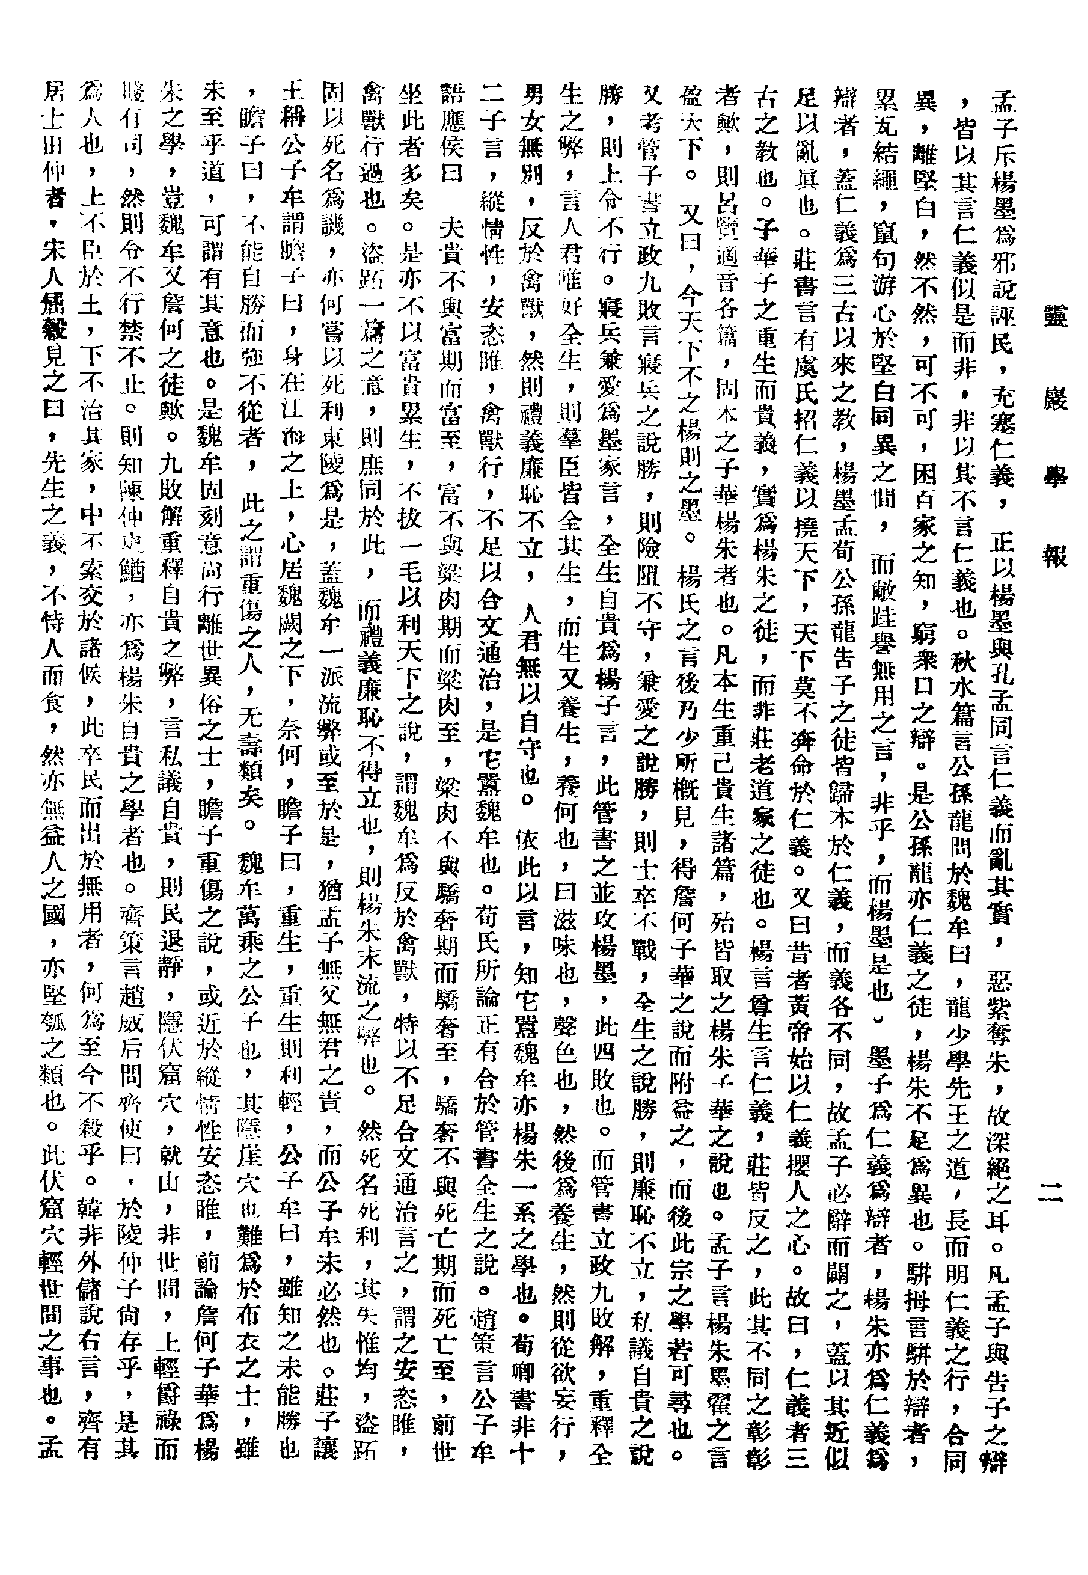 靈巖學報
二
孟子斥楊墨爲邪說誣民，充塞仁義，正以楊墨與孔孟同言仁義而亂其實，惡紫奪朱，故深絕之耳。凡孟子與告子之辯
，皆以其言仁義似是而非，非以其不言仁義也。秋水篇言公孫龍問於魏牟曰，龍少學先王之道，長而明仁義之行，合同
異，離堅白，然不然，可不可，困百家之知，窮衆口之辯。是公孫龍亦仁義之徒，楊朱不足爲異也。駢拇言駢於辯者，
累瓦結繩，竄句游心於堅白同異之間，而敝跬譽無用之言，非乎，而楊墨是也。墨子爲仁義爲辯者，楊朱亦爲仁義爲
辯者，蓋仁義爲三古以來之教，楊墨孟荀公孫龍告子之徒皆歸本於仁義，而義各不同，故孟子必辭而闢之，蓋以其近似
足以亂眞也。莊書言有虞氏招仁義以撓天下，天下莫不奔命於仁義。又曰昔者黃帝始以仁義攖人之心。故曰，仁義者三
古之教也。子華子之重生而貴義，實爲楊朱之徒，而非莊老道家之徒也。楊言尊生言仁義，莊皆反之，此其不同之彰彰
者歟，則呂覽適音各篇，固本之子華楊朱者也。凡本生重己貴生諸篇，殆皆取之楊朱子華之說也。孟子言楊朱墨翟之言
盈天下。又曰，今天下不之楊則之墨。楊氏之言後乃少所槪見，得詹何子華之說而附益之，而後此宗之學若可尋也。
又考管子書立政九敗言寢兵之說勝，則險阻不守，兼愛之說勝，則士卒不戰，全生之說勝，則廉恥不立，私議自貴之說
勝，則上令不行。寢兵兼愛爲墨家言，全生自貴爲楊子言，此管書之並攻楊墨，此四敗也。而管書立政九敗解，重釋全
生之弊，言人君唯好全生，則羣臣皆全其生，而生又養生，養何也，曰滋味也，聲色也，然後爲養生，然則從欲妄行，
男女無別，反於禽獸，然則禮義廉恥不立，人君無以自守也。依此以言，知它囂魏牟亦楊朱一系之學也。荀卿書非十
二子言，縱情性，安恣睢，禽獸行，不足以合文通治，是它囂魏牟也。荀氏所論正有合於管書全生之說。趙策言公子牟
語應侯曰　夫貴不與富期而富至，富不與梁肉期而梁肉至，梁肉不與驕奢期而驕奢至，驕奢不與死亡期而死亡至，前世
坐此者多矣。是亦不以富貴累生，不拔一毛以利天下之說，謂魏牟爲反於禽獸，特以不足合文通治言之，謂之安恣睢，
禽獸行過也。盜跖一篇之意，則庶同於此，而禮義廉恥不得立也，則楊朱末流之弊也。然死名死利，其失惟均，盜跖
固以死名爲譏，亦何嘗以死利東陵爲是，蓋魏牟一派流弊或至於是，猶孟子無父無君之責，而公子牟未必然也。莊子讓
王稱公子牟謂瞻子曰，身在江海之上，心居魏闕之下，奈何，瞻子曰，重生，重生則利輕，公子牟曰，雖知之未能勝也
，瞻子曰，不能自勝而強不從者，此之謂重傷之人，无壽類矣。魏牟萬乘之公子也，其隱崖穴也難爲於布衣之士，雖
未至乎道，可謂有其意也。是魏牟固刻意尚行離世異俗之士，瞻子重傷之說，或近於縱情性安恣睢，前論詹何子華爲楊
朱之學，豈魏牟又詹何之徒歟。九敗解重釋自貴之弊，言私議自貴，則民退靜，隱伏窟穴，就山，非世間，上輕爵祿而
賤有司，然則令不行禁不止。則知陳仲史鰌，亦爲楊朱自貴之學者也。齊策言趙威后問齊使曰，於陵仲子尚存乎，是其
爲人也，上不臣於王，下不治其家，中不索交於諸候，此率民而出於無用者，何爲至今不殺乎。韓非外儲說右言，齊有
居士田仲者，宋人屈穀見之曰，先生之義，不恃人而食，然亦無益人之國，亦堅瓠之類也。此伏窟穴輕世間之事也。孟